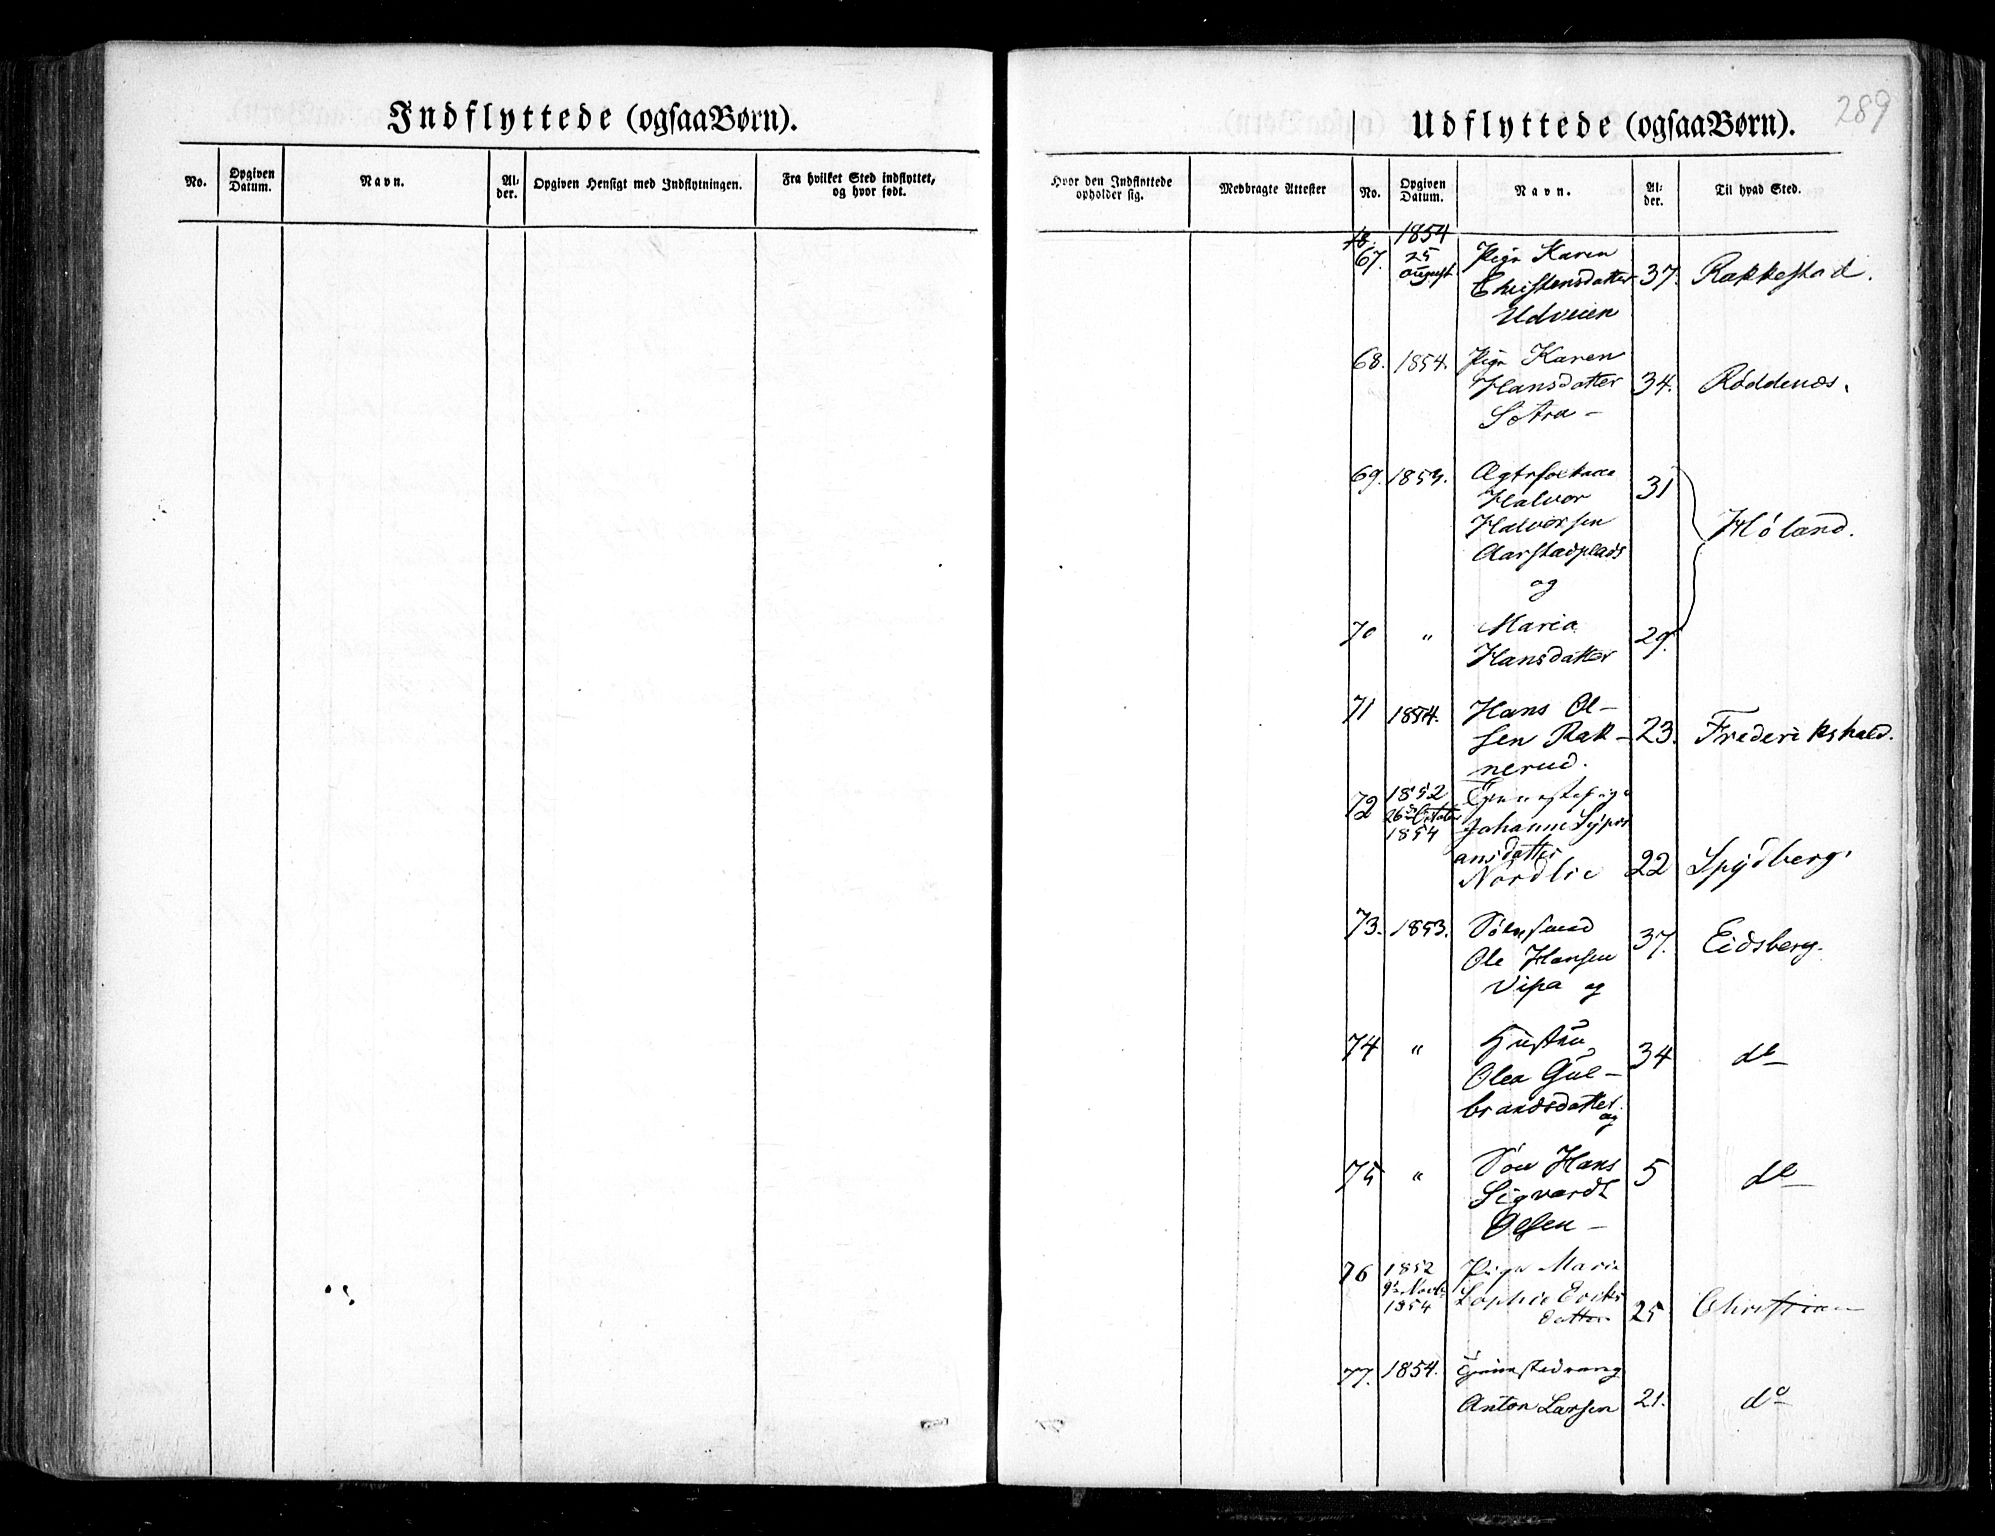 Indflyttede (ogsaa Børn).
No.
Opgiven Datum.
Navn.
Al-
der.
Opgiven Hensigt med Indflytningen.
Fra hvilket Sted indflyttet,
og hvor født.
289
Udflyttede (ogsaa Børn).
Hvor den Indflyttede
opholder sig.
Medbragte Attester
No.
Opgiven
Datum.
Navn.
Al-
der.
Til hvad Sted.
1854
67. 25 Pige Karen
August Christensdatter 37. Rakkestad.
Udveien
68. 1854. Pige Karen
Hansdatter 34. Røddenæs.
Sotra -
69. 1854. Ægtefolkene
Halvor 31
Halvorsen Høland.
Aarstadplads
og
70 " Maria 29.
Hansdatter
71 1854. Hans Ol-
sen Rak- 23. Frederikshald.
nerud.
72 1852 Tjenestepige
26de October
1854 Johanne Syver
ansdatter
Nordlie 22 Spydberg.
73. 1853.
Ole Hansen 37. Eidsberg.
Vipa og
74 " Hustru 34 do
Olea Gul-
brandsdatter
og
75 " Søn Hans 5 do
Sigvardt
Olsen -
76 1852 Pige Marie
1854 Sophie Eriks
datter 25 Christian
77. 1854.
Anton Larsen 21. do